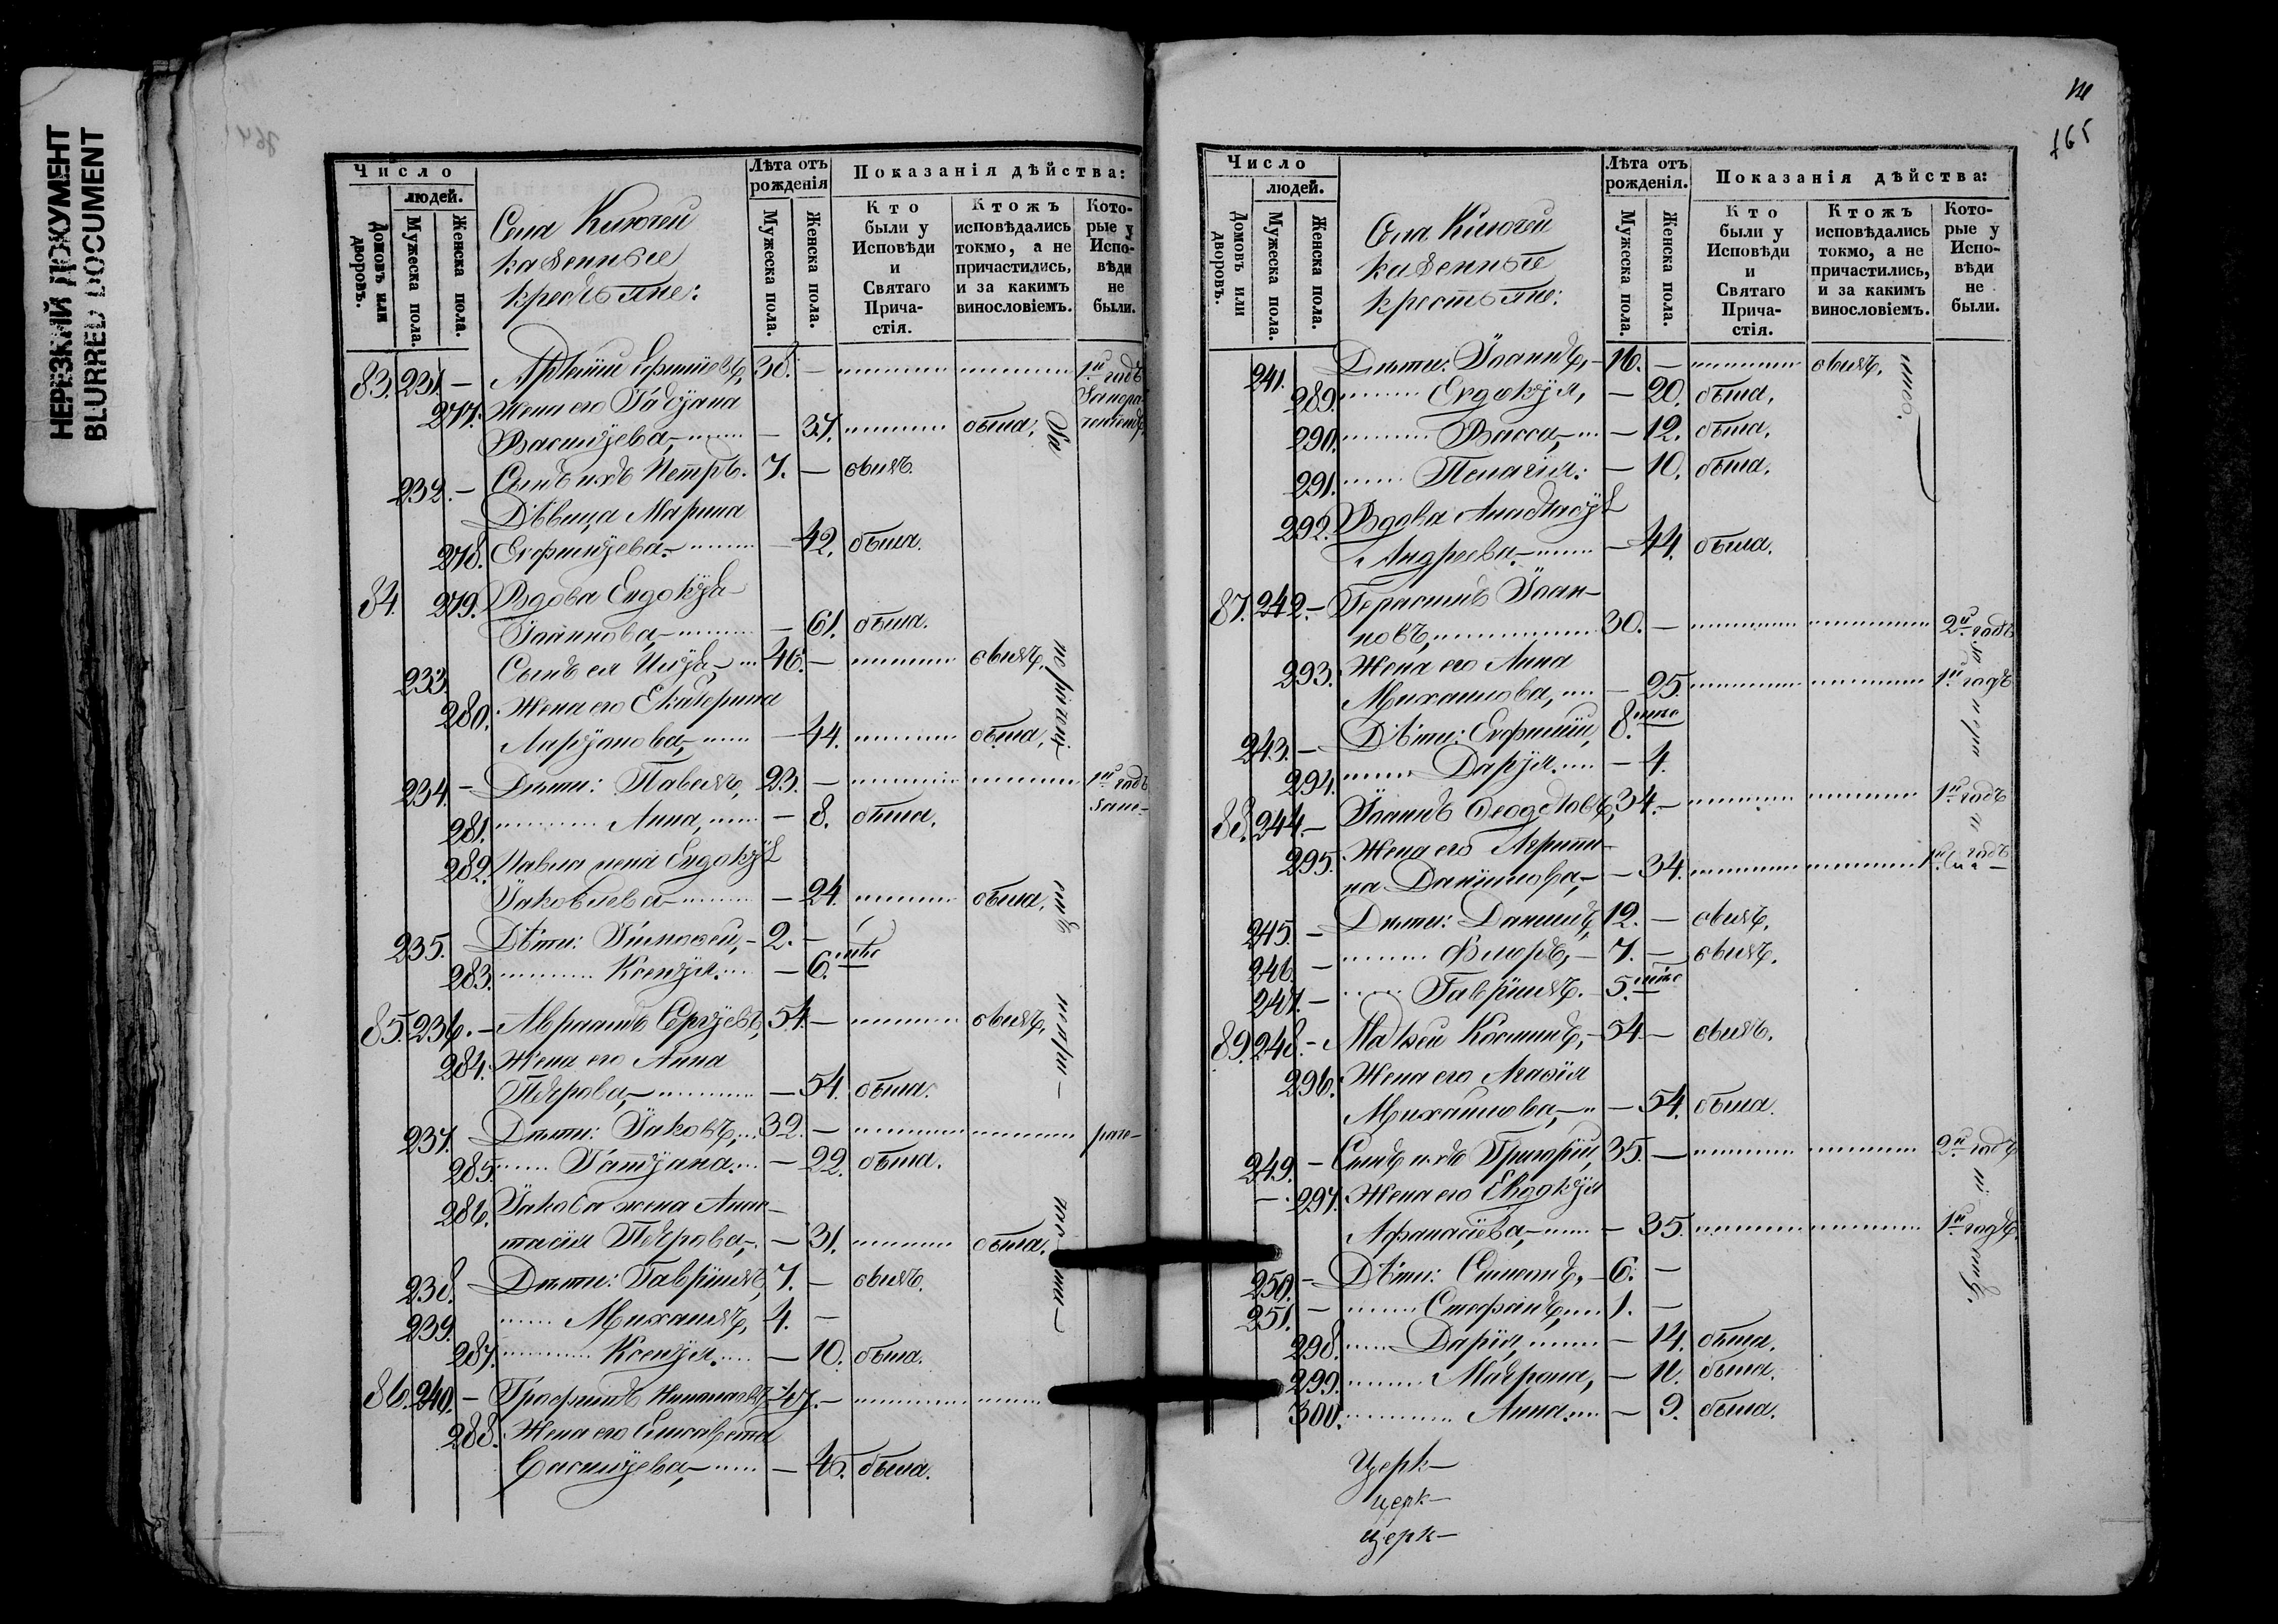 НЕРЕЗКИЙ ДОКУМЕНТ
BLURRED DOCUMENT
Число
людей.
Домовъ или дворовъ.
Мужеска пола.
Женска пола.
Села Ключей
казенные
крестьяне:
Лѣта отъ рожденія
Мужеска пола.
Женска пола.
Показанія дѣйства:
Кто были у Исповѣди и Святаго Прича-стія.
Ктожъ исповѣдались токмо, а не причастились, и за какимъ винословіемъ.
Кото-рые у Испо-вѣди не были.
83. 231. — 38. — 1й годъ
277. Жена его Татіана
Василіева, — 37. была. За
232. — Сынъ ихъ Петръ. 7. — былъ
Дѣвица Марина
278. Евфиміева. — 42. была.
84. 279. Вдова Евдокія
Іоаннова, — 61. была.
233. Сынъ ея Илія, 46. — былъ,
280. Жена его Екатерина
Ларіонова, — 44. была,
234. — Дѣти: Павелъ, 23. — 1й годъ
281. Анна, — 8. была,
282. Павла жена Евдокія
Іаковлева — 24. была,
235. Дѣти: Тимофей, — 2. —
283. Ксенія. — 6.
85. 236. — Авраамъ Сергіевъ, 54. — былъ,
284. Жена его Анна
Петрова, — 54. была.
237. Дѣти: Іаковъ, 32. —
285. Татіана. — 22. была.
286. Іакова жена Анас-
тасія Петрова, — 31. была.
238. Дѣти: Гавріилъ, 7. — былъ.
239. Михаилъ, 4. —
287. Ксенія. — 10. была.
86. 240. — Трофимъ Николаевъ, 47. —
288. Жена его Елисавета
Василіева, — 46. была.
165
Число
людей.
Домовъ или дворовъ.
Мужеска пола.
Женска пола.
Села Ключей
казенные
крестьяне:
Лѣта отъ рожденія.
Мужеска пола.
Женска пола.
Показанія дѣйства:
Кто были у Исповѣди и Святаго Прича-стія.
Ктожъ исповѣдались токмо, а не причастились, и за какимъ винословіемъ.
Кото-рые у Испо-вѣди не были.
241. Дѣти: Іоаннъ, — 16. — былъ.
289. Евдокія, — 20. была.
290. Васса, — 12. была.
291. Пелагія. — 10. была.
292. Вдова Анастасія
Андреева. — 44. была.
87. 242. — Герасимъ Іоан-
новъ, 30. — 2й годъ
293. Жена его Анна
Михаилова, — 25. 1й годъ
243. — Дѣти: Евфимій, 8.
294. Дарія. — 4.
88. 244. — Іоаннъ Феодотовъ, 34. — 1й годъ
295. Жена его Агрипи-
на Даніилова, — 34. 1й годъ
245. — Дѣти: Даніилъ, 12. — былъ,
246. — Флоръ, — 7. — былъ.
247. — Гавріилъ. — 5.
89. 248. — Матвей Косминъ, — 54 — былъ.
296. Жена его Агафія
Михаилова, — 54. была.
249. — Сынъ ихъ Григорій, 35. — 2й годъ
297. Жена его Евдокія
Афанасіева, — 35. 1й годъ.
250. — Дѣти: Симеонъ, — 6. —
251. — Стефанъ, 1. —
298. Дарія, — 14. была.
299. Матрона, — 11. была.
300. Анна. — 9. была.
Церк—
церк—
церк—